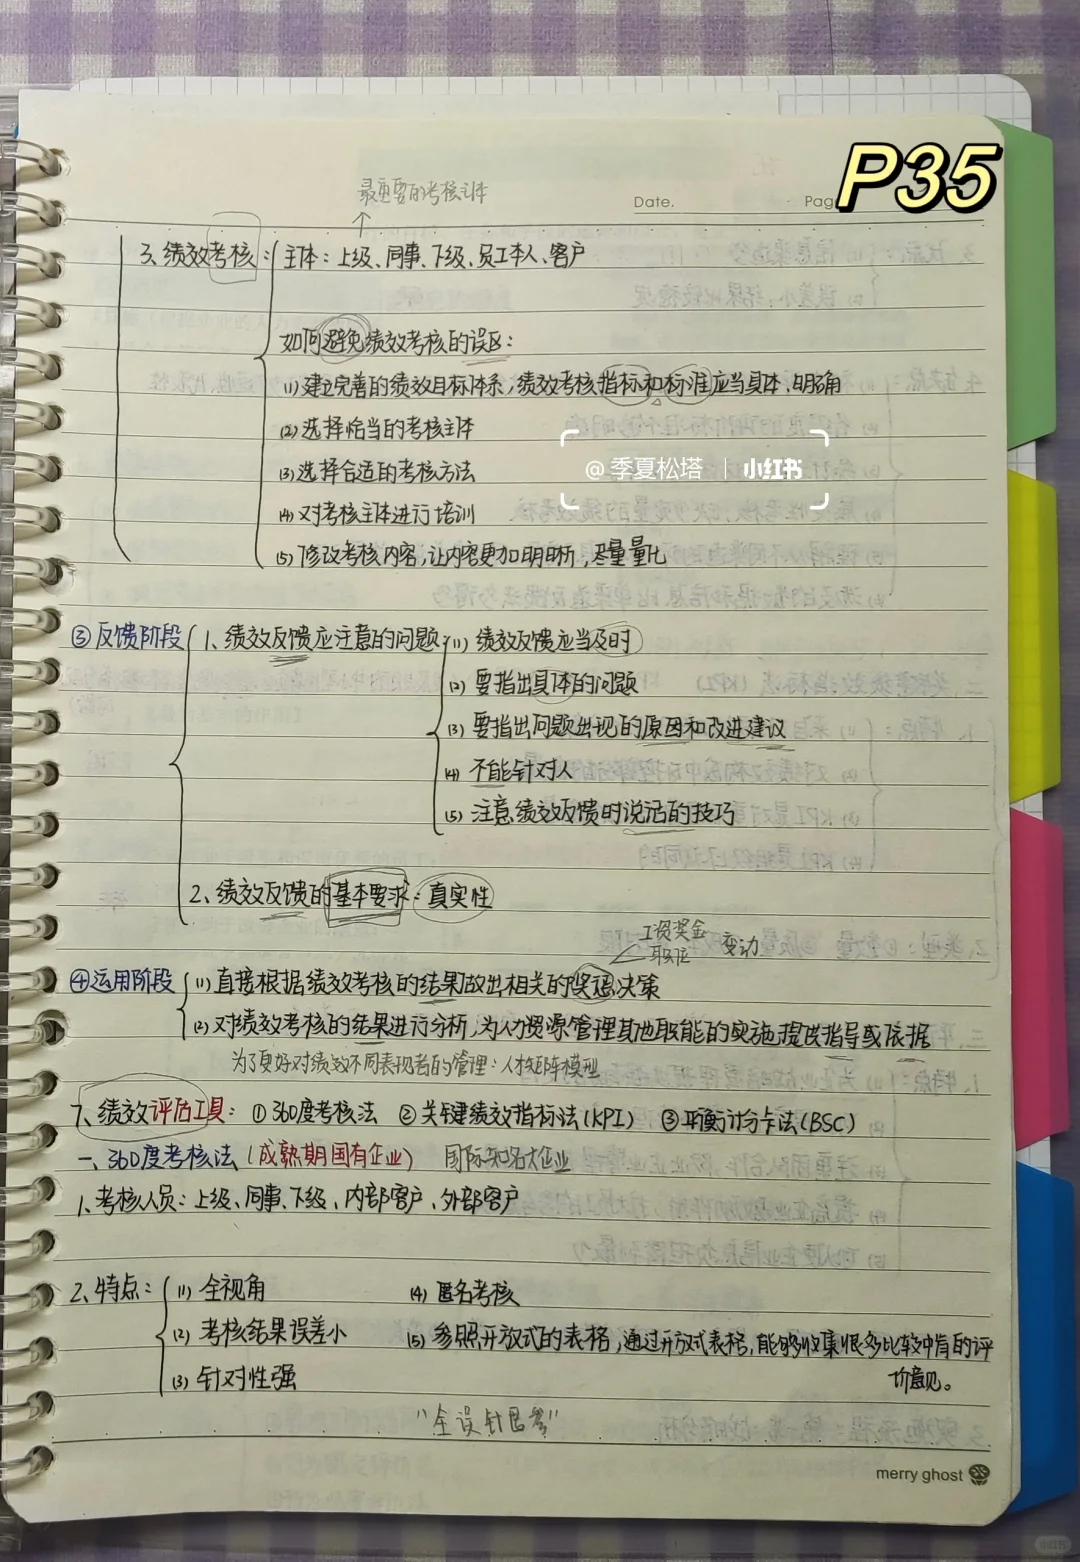 P35
最重要的考核主体
Date.
Pag
3、绩效考核：主体：上级、同事、下级、员工本人、客户
如何避免绩效考核的误区：
(1)建立完善的绩效目标体系，绩效考核指标和标准应当具体、明确
(2)选择恰当的考核主体
@季夏松塔 | 小红书
(3)选择合适的考核方法
(4)对考核主体进行培训
(5)修改考核内容，让内容更加明晰，尽量量化
③反馈阶段 1、绩效反馈应注意的问题：(1) 绩效反馈应当及时
(2) 要指出具体的问题
(3) 要指出问题出现的原因和改进建议
(4) 不能针对人
(5) 注意绩效反馈时说话的技巧
2、绩效反馈的基本要求：真实性
工资奖金
职位 变动
④运用阶段 (1)直接根据绩效考核的结果做出相关的奖惩决策
(2)对绩效考核的结果进行分析，为人力资源管理其他职能的实施提供指导或依据
为了更好对绩效不同表现者的管理：人才矩阵模型
7、绩效评估工具：①360度考核法 ②关键绩效指标法(KPI) ③平衡计分卡法(BSC)
一、360度考核法(成熟期国有企业) 国际知名大企业
1、考核人员：上级、同事、下级、内部客户、外部客户
2、特点：(1) 全视角 (4) 匿名考核
(2) 考核结果误差小 (5) 参照开放式的表格，通过开放式表格，能够收集很多比较中肯的评
(3) 针对性强 价意见。
"全误针匿参"
merry ghost
小红书